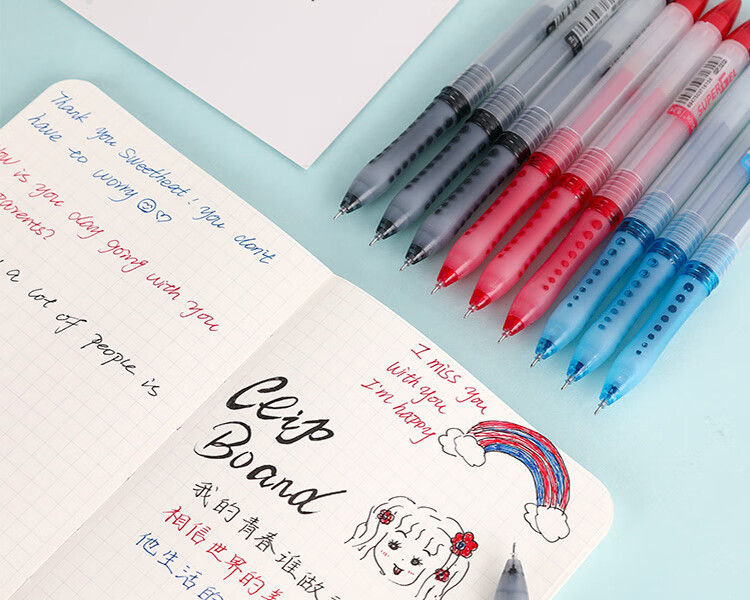 Thank you Sweetheat! You don't
have to worry
ow is you day going with you
parents?
a lot of people is
I miss you
With you
I'm happy
Clip
Board
我的青春谁做
相信世界的美
他生活的
SUPER GEL